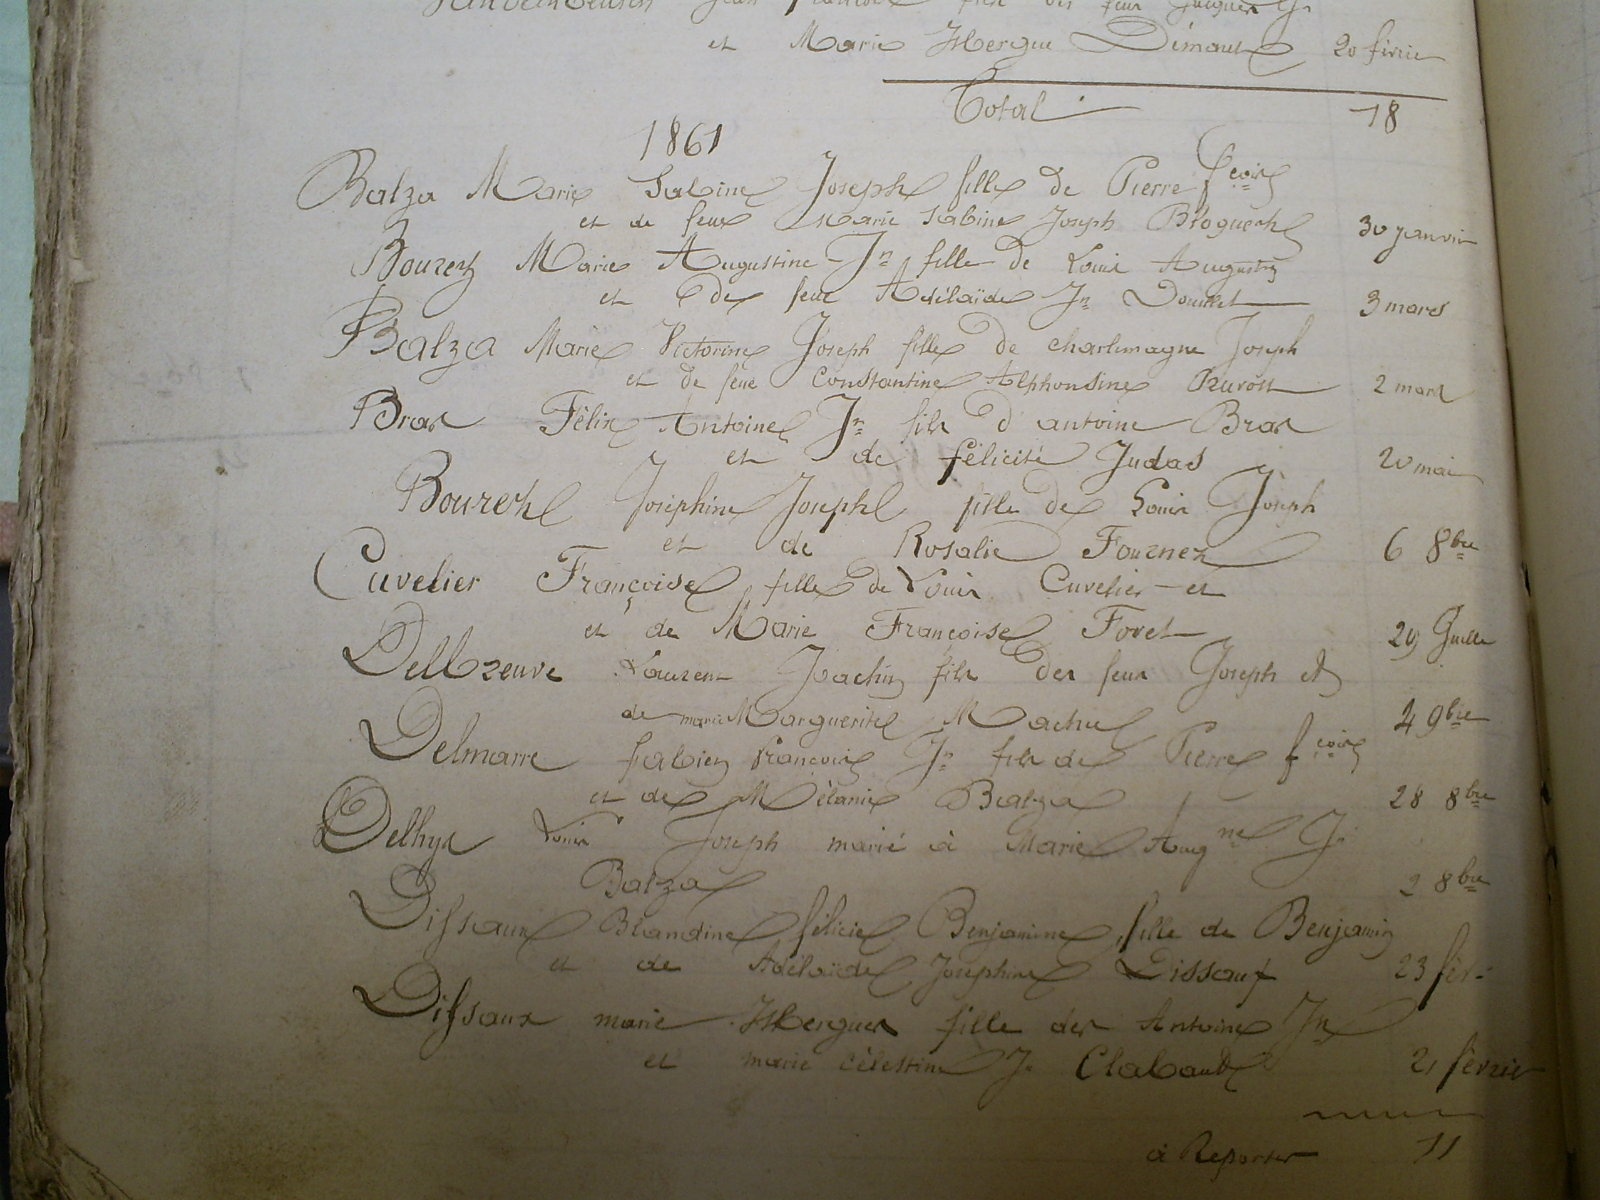 et Marie Démaut 20 février
Total 18
1861
Balza Marie Sabine Joseph fille de Pierre fcois
et de feue Marie Sabine Joseph 30 janvier
Bourez Marie Augustine Jh fille de Louis Augustin
et de feue Adélaïde Jh 3 mars
Balza Marie Victorine Joseph fille de charlemagne Joseph
et de feue Constantine Alphonsine Pruvost 2 mars
Bras Félix Antoine Jh fils d antoine Bras
et de félicité Judas 20 mai
Bourez Joséphine Joseph fille de Louis Joseph
et de Rosalie Fournez 6 8bre
Cuvelier Françoise fille de Louis Cuvelier et
et de Marie Françoise Foret 29 Juille
Delbreuve Laurent Joachin fils de feu Joseph et
de marie Marguerite Machu 4 9bre
Delmarre fabien François Jh fils de Pierre fcois
et de Mélanie Balza 28 8bre
Delhye Louis Joseph marié à Marie Augne Jh
Balza 2 8bre
Dissaux Blandine félicie Benjamine fille de Benjamin
et de Adélaïde Joséphine Dissaux 23 fév.
Dissaux marie fille de Antoine Jh
et marie célestine Jh Clabaut 21 février
à Reporter 11